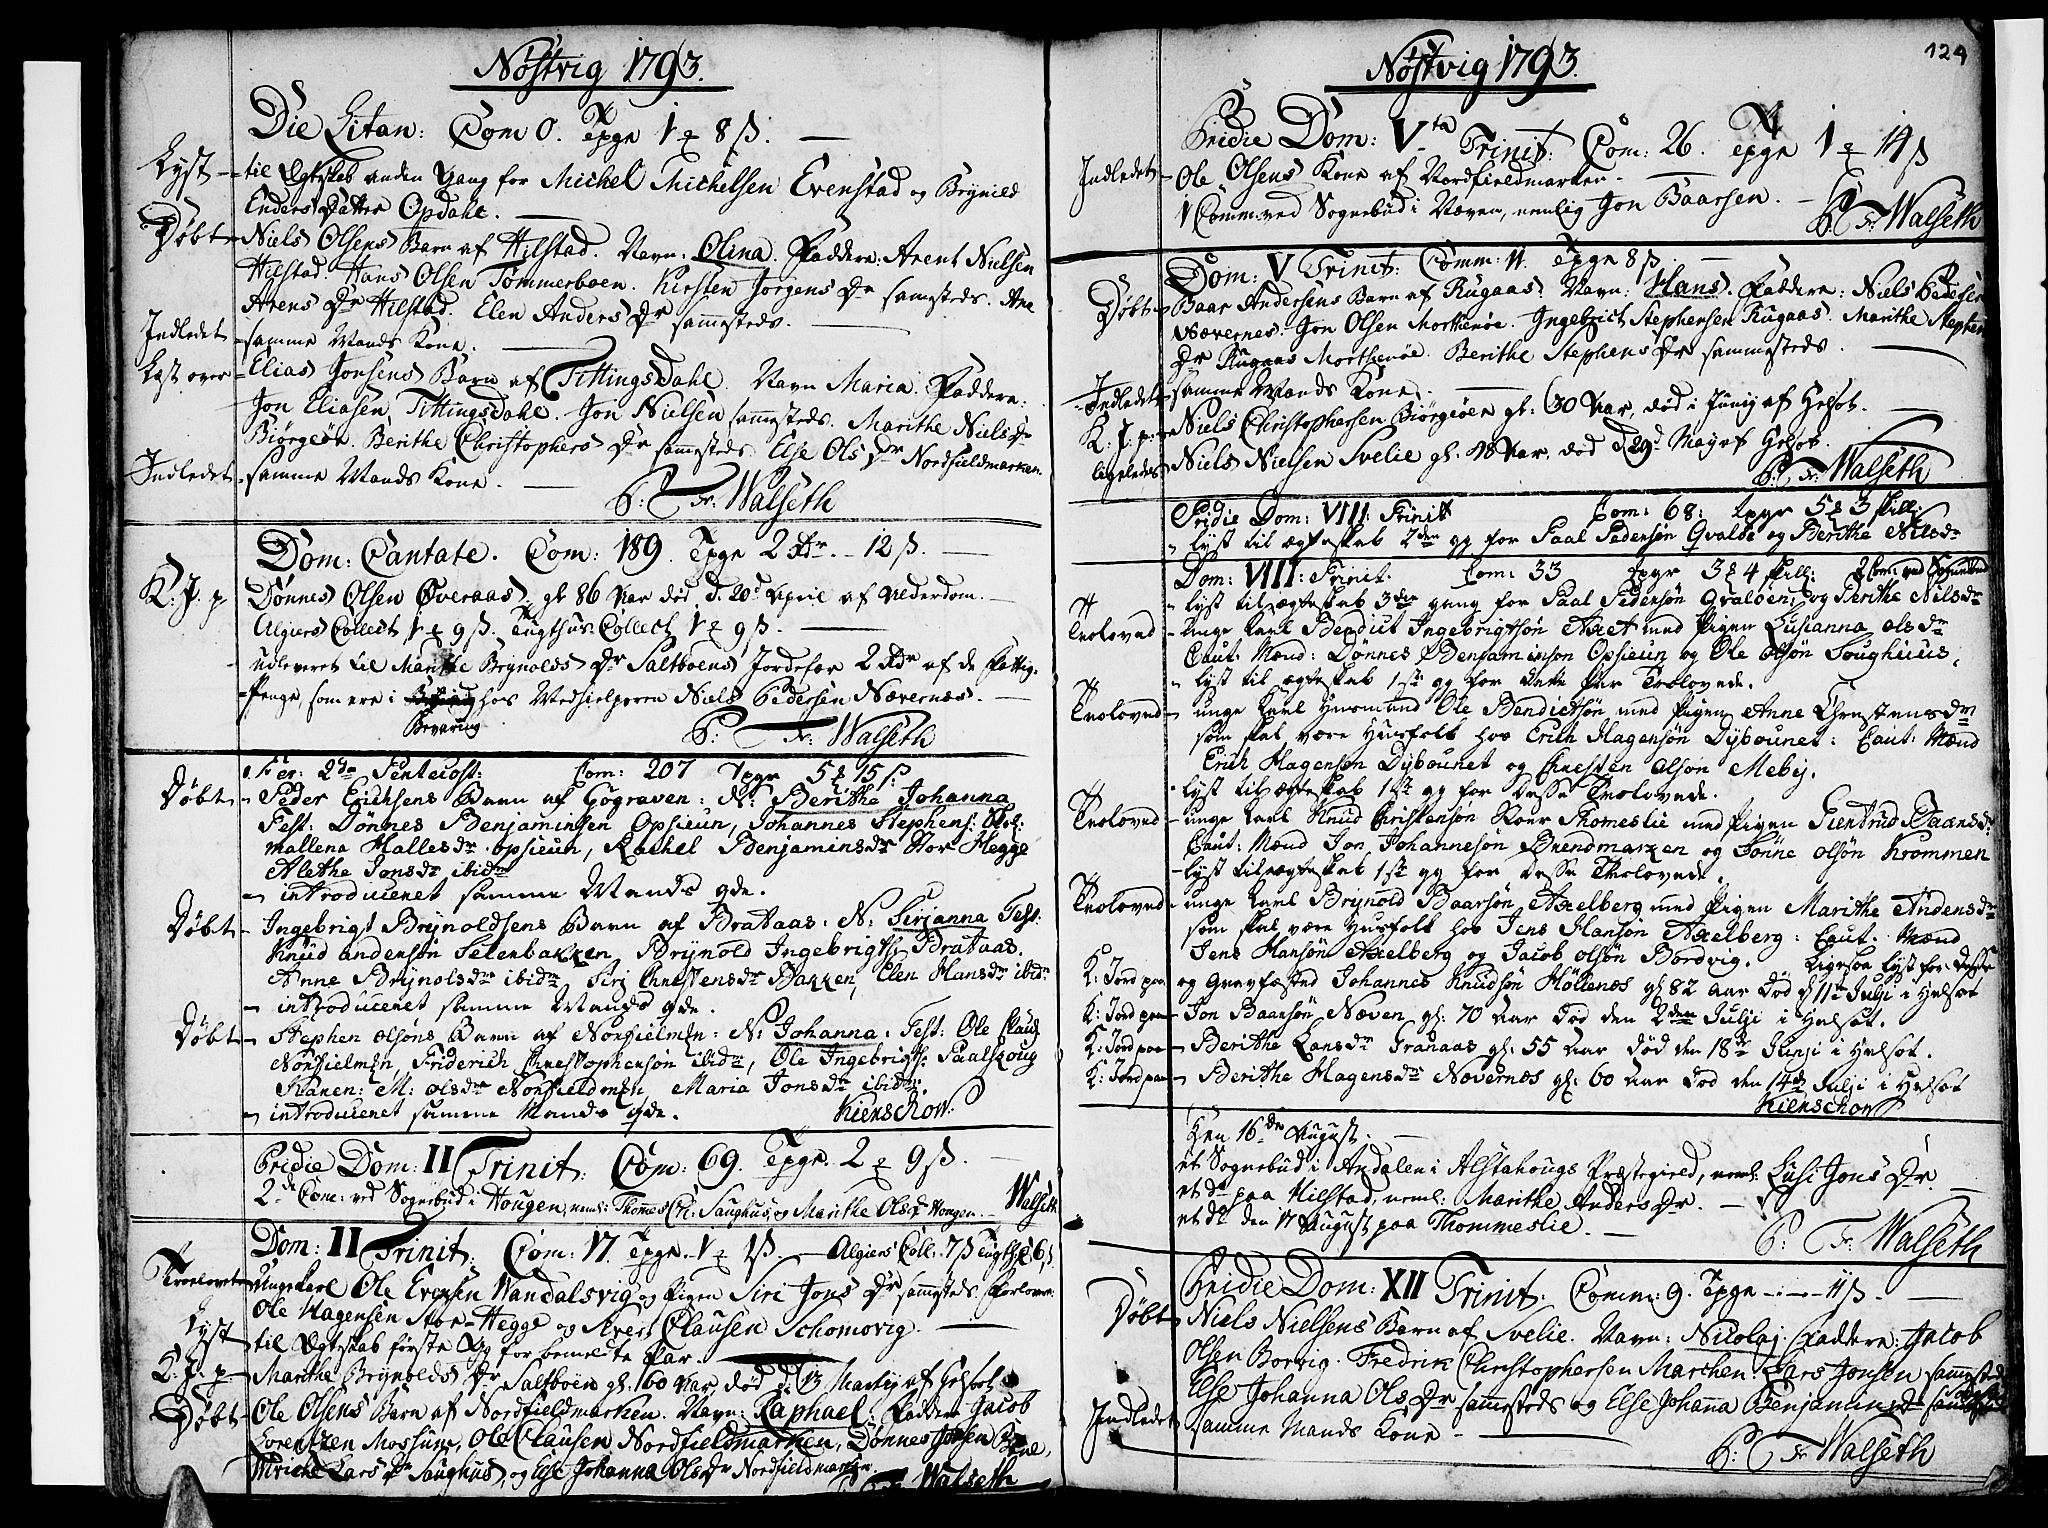 Nöstvig 1793.
Die Litan: Com 0. Tpgr 1 8 ß.
Lyst til Egteskab anden Gang for Michel Michelsen Evenstad og Brynild
Enders Datter Opdahl.
Döbt Niels Olsens Barn af Hilstad. Navn: Olina. Faddere: Arent Nielsen
Hilstad. Hans Olsen Tömmerboen. Kirsten Jorgens Dr sammesteds. Ane
Arens Dr Hilstad. Elen Anders Dr sammesteds.
Indledet samme Mands Kone.
Læst over Elias Jonsens Barn af Tittingsdahl. Navn Maria. Faddere:
Jon Eliasen Tittingsdahl. Jon Nielsen sammesteds. Marithe Niels Dr
Biörgeön. Berithe Christophers Dr sammesteds. Else Ols Dr Nordfieldmarken.
Indledet samme Mands Kone.
P: Fr: Walseth
Dom: Cantate. Com: 189. Tpgr 2 Rdr. 12 ß.
K. J. p Dönnes Olsen Överaas gl 86 Aar död d. 20d April af Alderdom.
Algiers Collect 1 9 ß. Tugthus Collect 1 9 ß.
udleveret til Marithe Brynolds Dr Saltboens Jordefær 2 Rdr af de Fattiges
Penge, som ere i Bevaring hos Medhielperen Niels Pedersen Nævernæs.
P: Fr: Walseth
Fer: 2da Pentecost: Com: 207 Tpgr 5 15 ß
Döbt Peder Erichsens Barn af Gograven: N: Berithe Johanna
Test: Dönnes Benjaminsen Opsieun, Johannes Stephens: Ibid:
Mallena Hallesdr opsieun, Rachel Benjaminsdr Stor Hegge
Alethe Jonsdr ibidm
introduceret samme Mands qde.
Döbt Ingebrigt Brynoldsens Barn af Brataas: N: Sirjanna Test:
Knud andersön Selenbakken, Brynold Ingebrigts: Brataas.
Anne Brynolsdr ibidm Siri Christensdr Bakken, Elen Hansdr ibidm
introduceret samme Mands qde.
Döbt Stephen olsöns Barn af Norfielmln: N: Johanna. Test: Ole Claus
Norfielmln, Friderich Christophersön ibidm, Ole Ingebrigts: Saalskoug
Karen: M: olsdr Norfieldmln Maria Jonsdr ibidm.
introduceret samme Mands qde. Kierschow:
Pridie Dom: II Trinit: Com: 69. Tpgr 2 9 ß.
2de Com: ved Sognebud i Hougen, neml: Thomes Saughus og Marithe Ols Dr Hougen. Walseth
Dom: II Trinit: Com: 17. Tpgr. 1 1 ß. Algiers Coll: 7 ß Tugth: 6 ß
Troelovet Unge Karl Ole Evensen Wandalsvig og Pigen Siri Jons Dr sammesteds. Forlovere:
Ole Hagensen Stor-Hegge og Iver Clausen Schomovig.
Lyst til Egteskab förste Gg for bemeldte Par.
K. J. p Marithe Brynolds Dr Saltboen gl. 60 Aar död d. 13 Martij af Helsot
Döbt Ole Olsens Barn af Nordfieldmarken. Navn: Raphael. Faddere Jacob
Lorentzen Mossum, Ole Clausen Nordfieldmarken, Dönnes Jonsen
Lars Dr Saughus, og Else Johanna Ols Dr Nordfieldmarken
Walseth
124
Nöstvig 1793.
Pridie Dom: Vta Trinit: Com: 26. Tpgr 1 14 ß
Indledet Ole Olsens Kone af Nordfieldmarken.
1 Comm: ved Sognebud i Næven, nemlig Jon Baarsen.
P: Fr: Walseth
Dom: V Trinit: Comm: 11. Tpgr 8 ß.
Döbt Baar Andersens Barn af Rugaas. Navn: Hans. Faddere: Niels Pedersen
Nævernes. Jon Olsen Morthenöe. Ingebrict Stephensen Rugaas. Marithe Stephens
Dr Rugaas Morthenöe. Berithe Stephens Dr sammesteds.
Indledet samme Mands Kone.
K. J. p. Niels Christophersen Biörgeöen gl: 30 Aar, död i Junij af Helsot.
ligeledes Niels Nielsen Svelie gl: 18 Aar, död d 29d Maj af Helsot.
P: Fr: Walseth
Pridie Dom: VIII: Trinit Com: 68: tpgr 5 3 skill:
Lyst til ægteskab 2den gg for Paal Pedersön Qvalöe og Berithe Nilsdr
Dom: VIII: Trinit. Com: 33 tpgr 3 4 skill: 2 Com: ved Sognebud
Lyst til ægteskab 3die gang for Paal Pedersön Qvalöen og Berithe Nilsdr
Trolovet unge karl Bendict Ingebrigtsön Axet med Pigen Lusianna olsdr
Caut: Mænd: Dönnes Benjaminsön Opsieun og Ole olsön Soughuus.
Lyst til ægteskab 1ste gg for dette par Trolovede.
Troloved unge karl Huusmand Ole Bendictsön med Pigen Anne Christensdr
som skal være Huusfolk hos Erich Hagensön Dybounet: Caut: Mænd
Erich Hagensön Dybounet og Christen olsön Meby.
Lyst til ægteskab 1ste gg for Desse Trolovede.
Troloved unge karl Knud Christensön Roer Thomeslie med Pigen Gientrud Baarsdr
Caut: Mænd Jon Johannesön Brendmarken og Tönne olsön Krommen
Lyst til ægteskab 1ste gg for Desse Trolovede.
Troloved unge karl Brynold Baarsön Axelberg med Pigen Marithe Andersdr
som skal være Huusfolk hos Jens Hansön Axelberg: Caut: Mænd
Jens Hansön Axelberg og Jacob olsön Bordvig. Ligesaa lyst for desse
K: Jord paa og Gravfæsted Johannes Knudsön Höllenæs gl 82 aar död d 11te Julji i Helsot
K: Jord paa Jon Baarsön Næven gl: 70 aar död den 2den Julji i Helsot.
K: Jord paa Berithe Larsdr Granaas gl: 55 aar död den 18de Junji i Helsot.
K: Jord paa Berithe Hagensdr Nævernes gl: 60 aar död den 14de Julji i Helsot
Kierschow
Den 16de August.
et Sognebud i Andalen i Alstahougs Præstegield, neml: Lusi Jons Dr.
et do paa Hilstad, neml: Marithe Anders Dr.
et do den 17 August paa Thommeslie.
P: Fr: Walseth
Pridie Dom: XII Trinit: Comm: 9. Tpgr 4 ß.
Döbt Niels Nielsens Barn af Svelie. Navn: Nicolaj. Faddere: Jacob
Olsen Borvig. Fredrik Christophersen Marchen. Lars Jonsen sammesteds
Else Johanna Ols Dr sammesteds og Else Johanna Benjamins Dr sammesteds
Indledet samme Mands Kone
P: Fr: Walseth